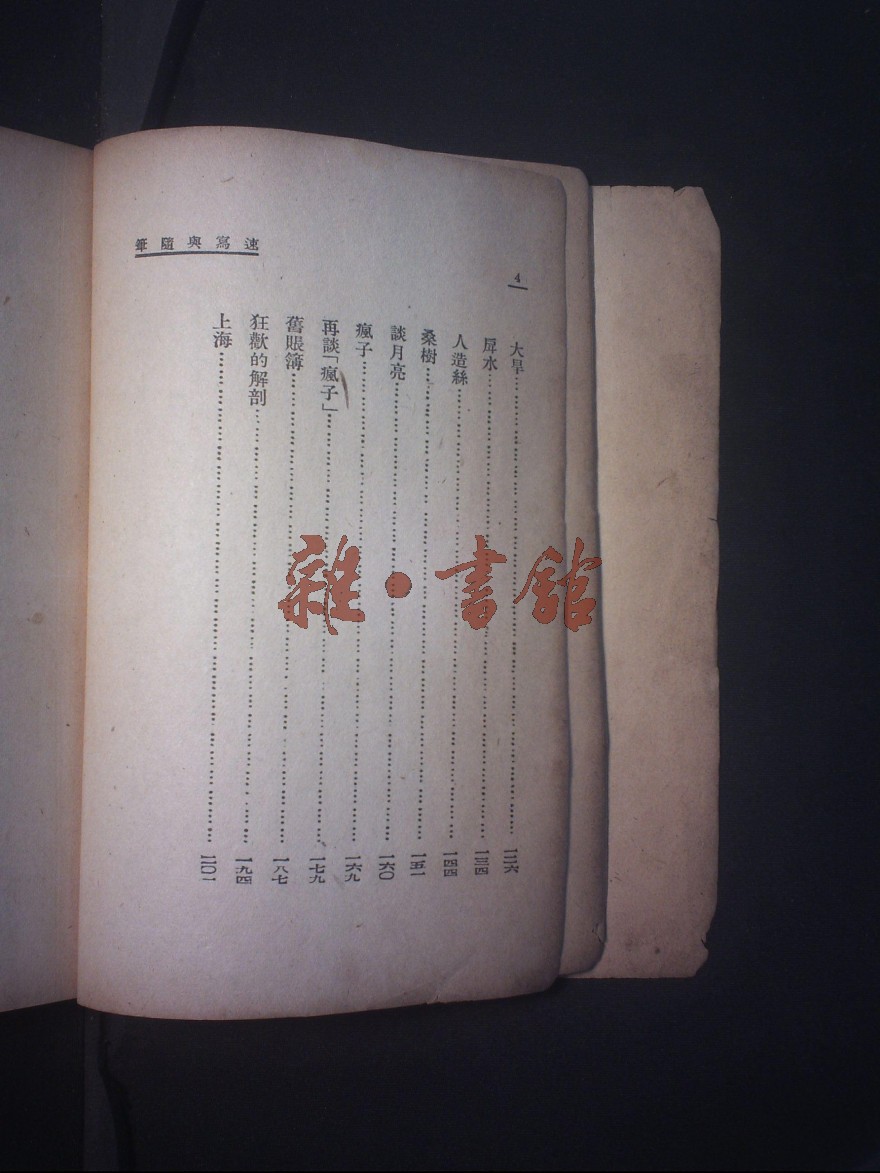 速寫與隨筆
4
大旱……一二六
戽水……一三四
人造絲……一四四
桑樹……一五一
談月亮……一六〇
瘋子……一六九
再談「瘋子」……一七九
舊賬簿……一八七
狂歡的解剖……一九四
上海……二〇一
雜•書館